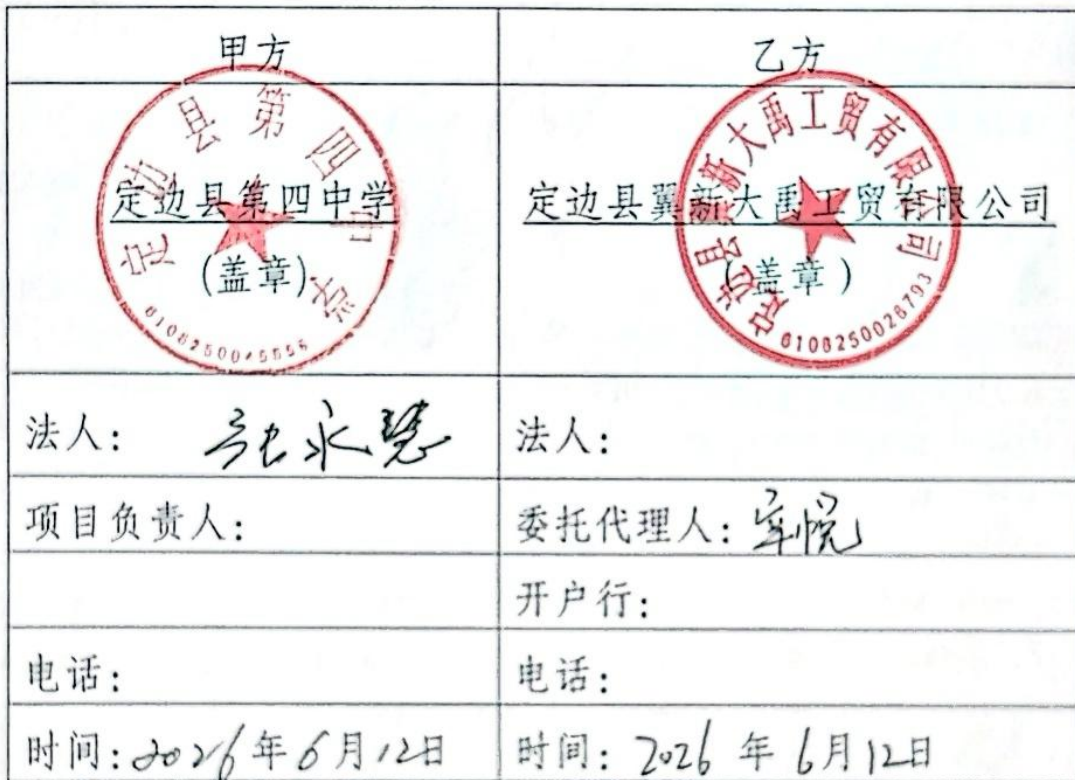 甲方
乙方
定边县第四中学
(盖章)
定边县第四中学
定边县翼新大禹工贸有限公司
(盖章)
定边县翼新大禹工贸有限公司
6108250026793
法人: 张永慧
法人:
项目负责人:
委托代理人:
开户行:
电话:
电话:
时间: 2026年6月12日
时间: 2026年6月12日